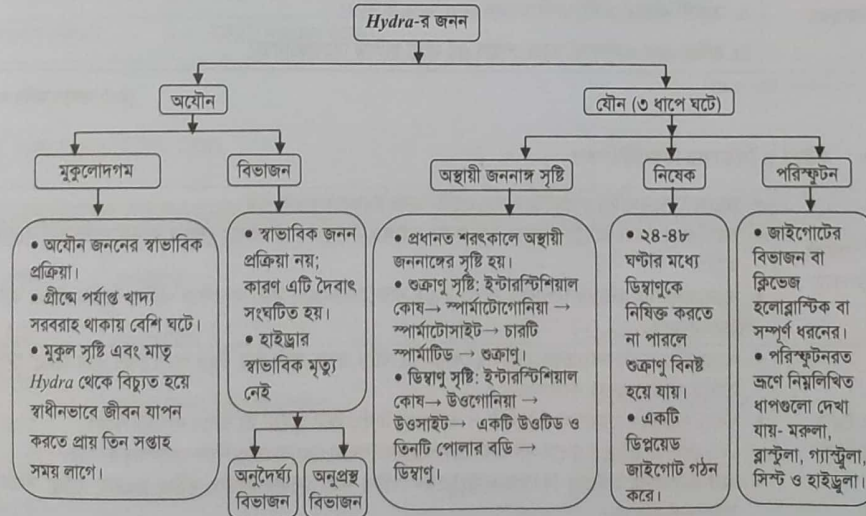 Hydra-র জনন
অযৌন
যৌন (৩ ধাপে ঘটে)
মুকুলোদগম
বিভাজন
অস্থায়ী জননাঙ্গ সৃষ্টি
নিষেক
পরিস্ফুটন
• অযৌন জননের স্বাভাবিক
প্রক্রিয়া।
• গ্রীষ্মে পর্যাপ্ত খাদ্য
সরবরাহ থাকায় বেশি ঘটে।
• মুকুল সৃষ্টি এবং মাতৃ
Hydra থেকে বিচ্যুত হয়ে
স্বাধীনভাবে জীবন যাপন
করতে প্রায় তিন সপ্তাহ
সময় লাগে।
• স্বাভাবিক জনন
প্রক্রিয়া নয়;
কারণ এটি দৈবাৎ
সংঘটিত হয়।
• হাইড্রার
স্বাভাবিক মৃত্যু
নেই
অনুদৈর্ঘ্য
বিভাজন
অনুপ্রস্থ
বিভাজন
• প্রধানত শরৎকালে অস্থায়ী
জননাঙ্গের সৃষ্টি হয়।
• শুক্রাণু সৃষ্টি: ইন্টারস্টিশিয়াল
কোষ→ স্পার্মাটোগোনিয়া →
স্পার্মাটোসাইট→ চারটি
স্পার্মাটিড → শুক্রাণু।
• ডিম্বাণু সৃষ্টি: ইন্টারস্টিশিয়াল
কোষ → উওগোনিয়া →
উওসাইট→ একটি উওটিড ও
তিনটি পোলার বডি →
ডিম্বাণু।
• ২৪-৪৮
ঘণ্টার মধ্যে
ডিম্বাণুকে
নিষিক্ত করতে
না পারলে
শুক্রাণু বিনষ্ট
হয়ে যায়।
• একটি
ডিপ্লয়েড
জাইগোট গঠন
করে।
• জাইগোটের
বিভাজন বা
ক্লিভেজ
হলোব্লাস্টিক বা
সম্পূর্ণ ধরনের।
• পরিস্ফুটনরত
ভ্রূণে নিম্নলিখিত
ধাপগুলো দেখা
যায়- মরুলা,
ব্লাস্টুলা, গ্যাস্ট্রুলা,
সিস্ট ও হাইড্রুলা।